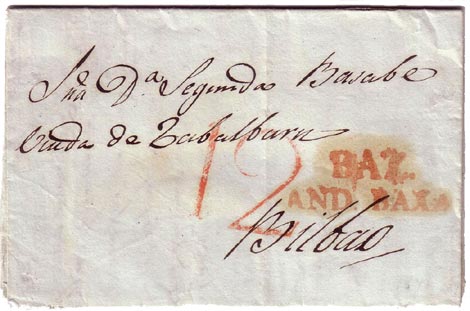 Sra Da Segunda Basabe
Viuda de Zabalburu
12
BAZ.
AND. BAXA
Bilbao